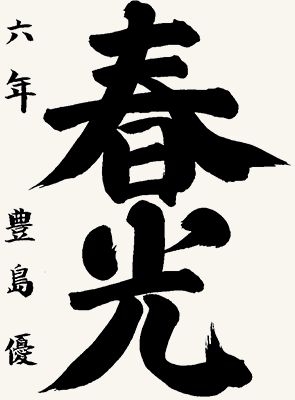 春光
六年 豊島優